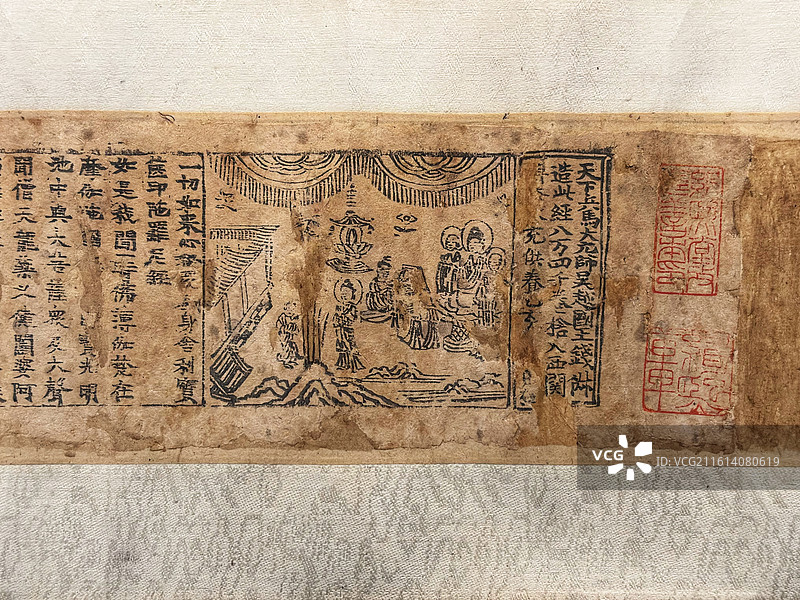 天下兵馬大元帥吳越國王錢俶
造此經八万四千卷捨入西關
充供養乙亥
一切如來心全身舍利寶
篋印陀羅尼經
如是我聞一時佛薄伽梵在
摩伽陀國寶光明
池中與大菩薩衆及大聲
聞僧天龍藥叉健闥婆阿
VCG
ID:VCG211614080619